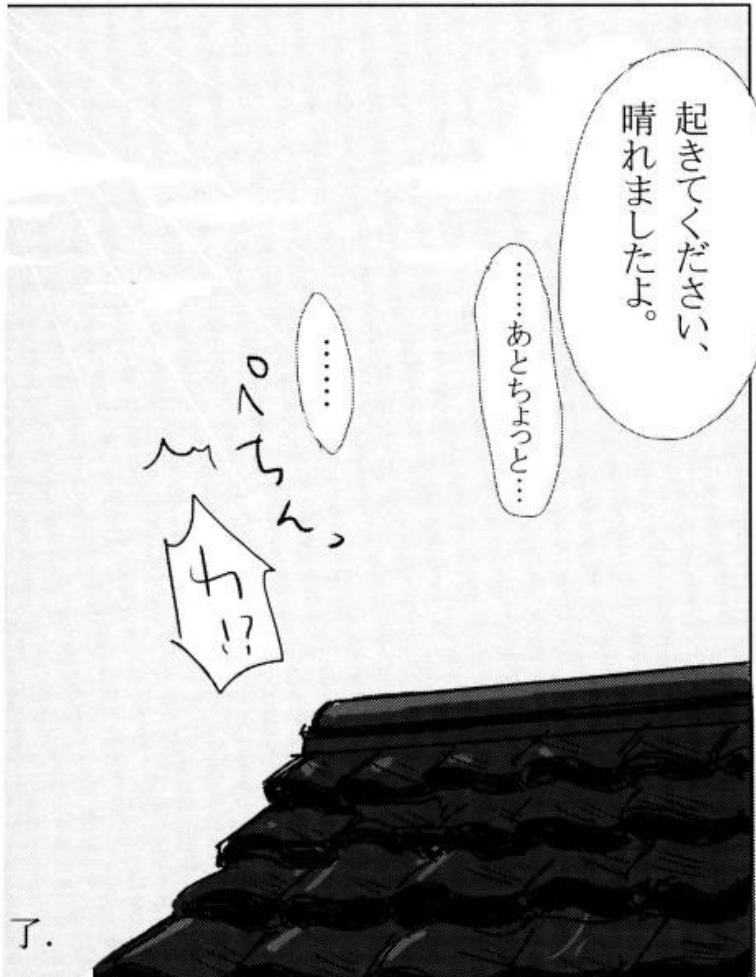 起きてください、
晴れましたよ。
……あとちょっと…
……
ぺちんっ
わ!?
了.